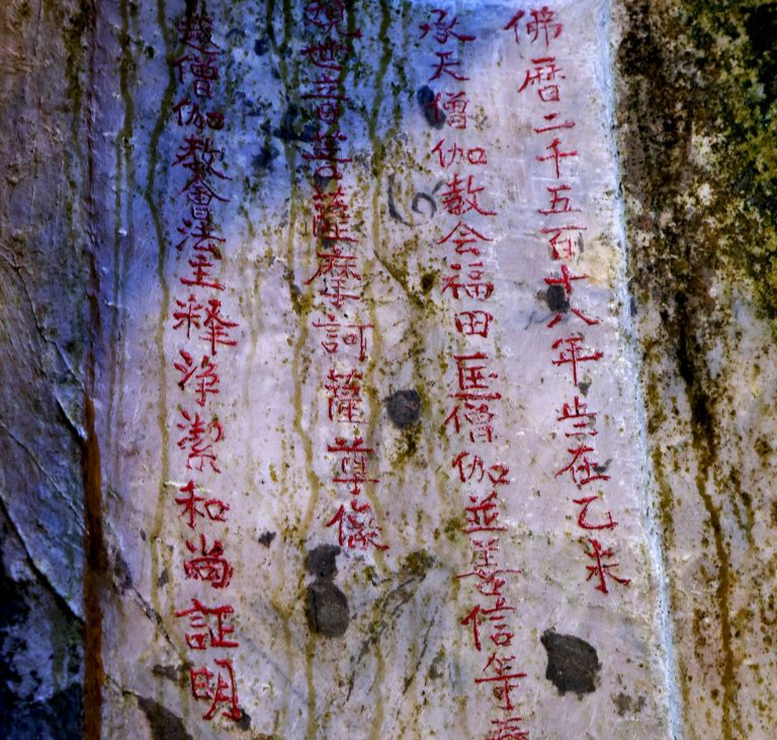 佛曆二千五百十八年岁在乙未
承天僧伽教会福田匡僧伽並善信等
觀世音菩薩摩訶薩尊像
越僧伽教會法主釋淨潔和尚証明